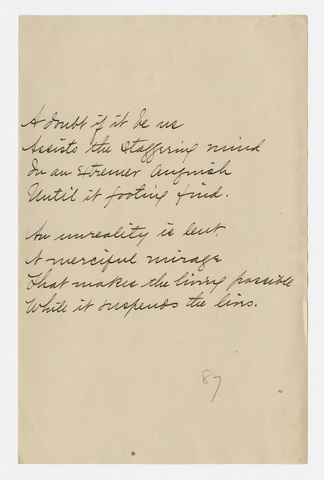 A doubt if it be us
Assists the staggering mind
In an extremer anguish
Until it footing find.
An unreality is lent,
A merciful mirage
That makes the living possible
While it suspends the lives.
87